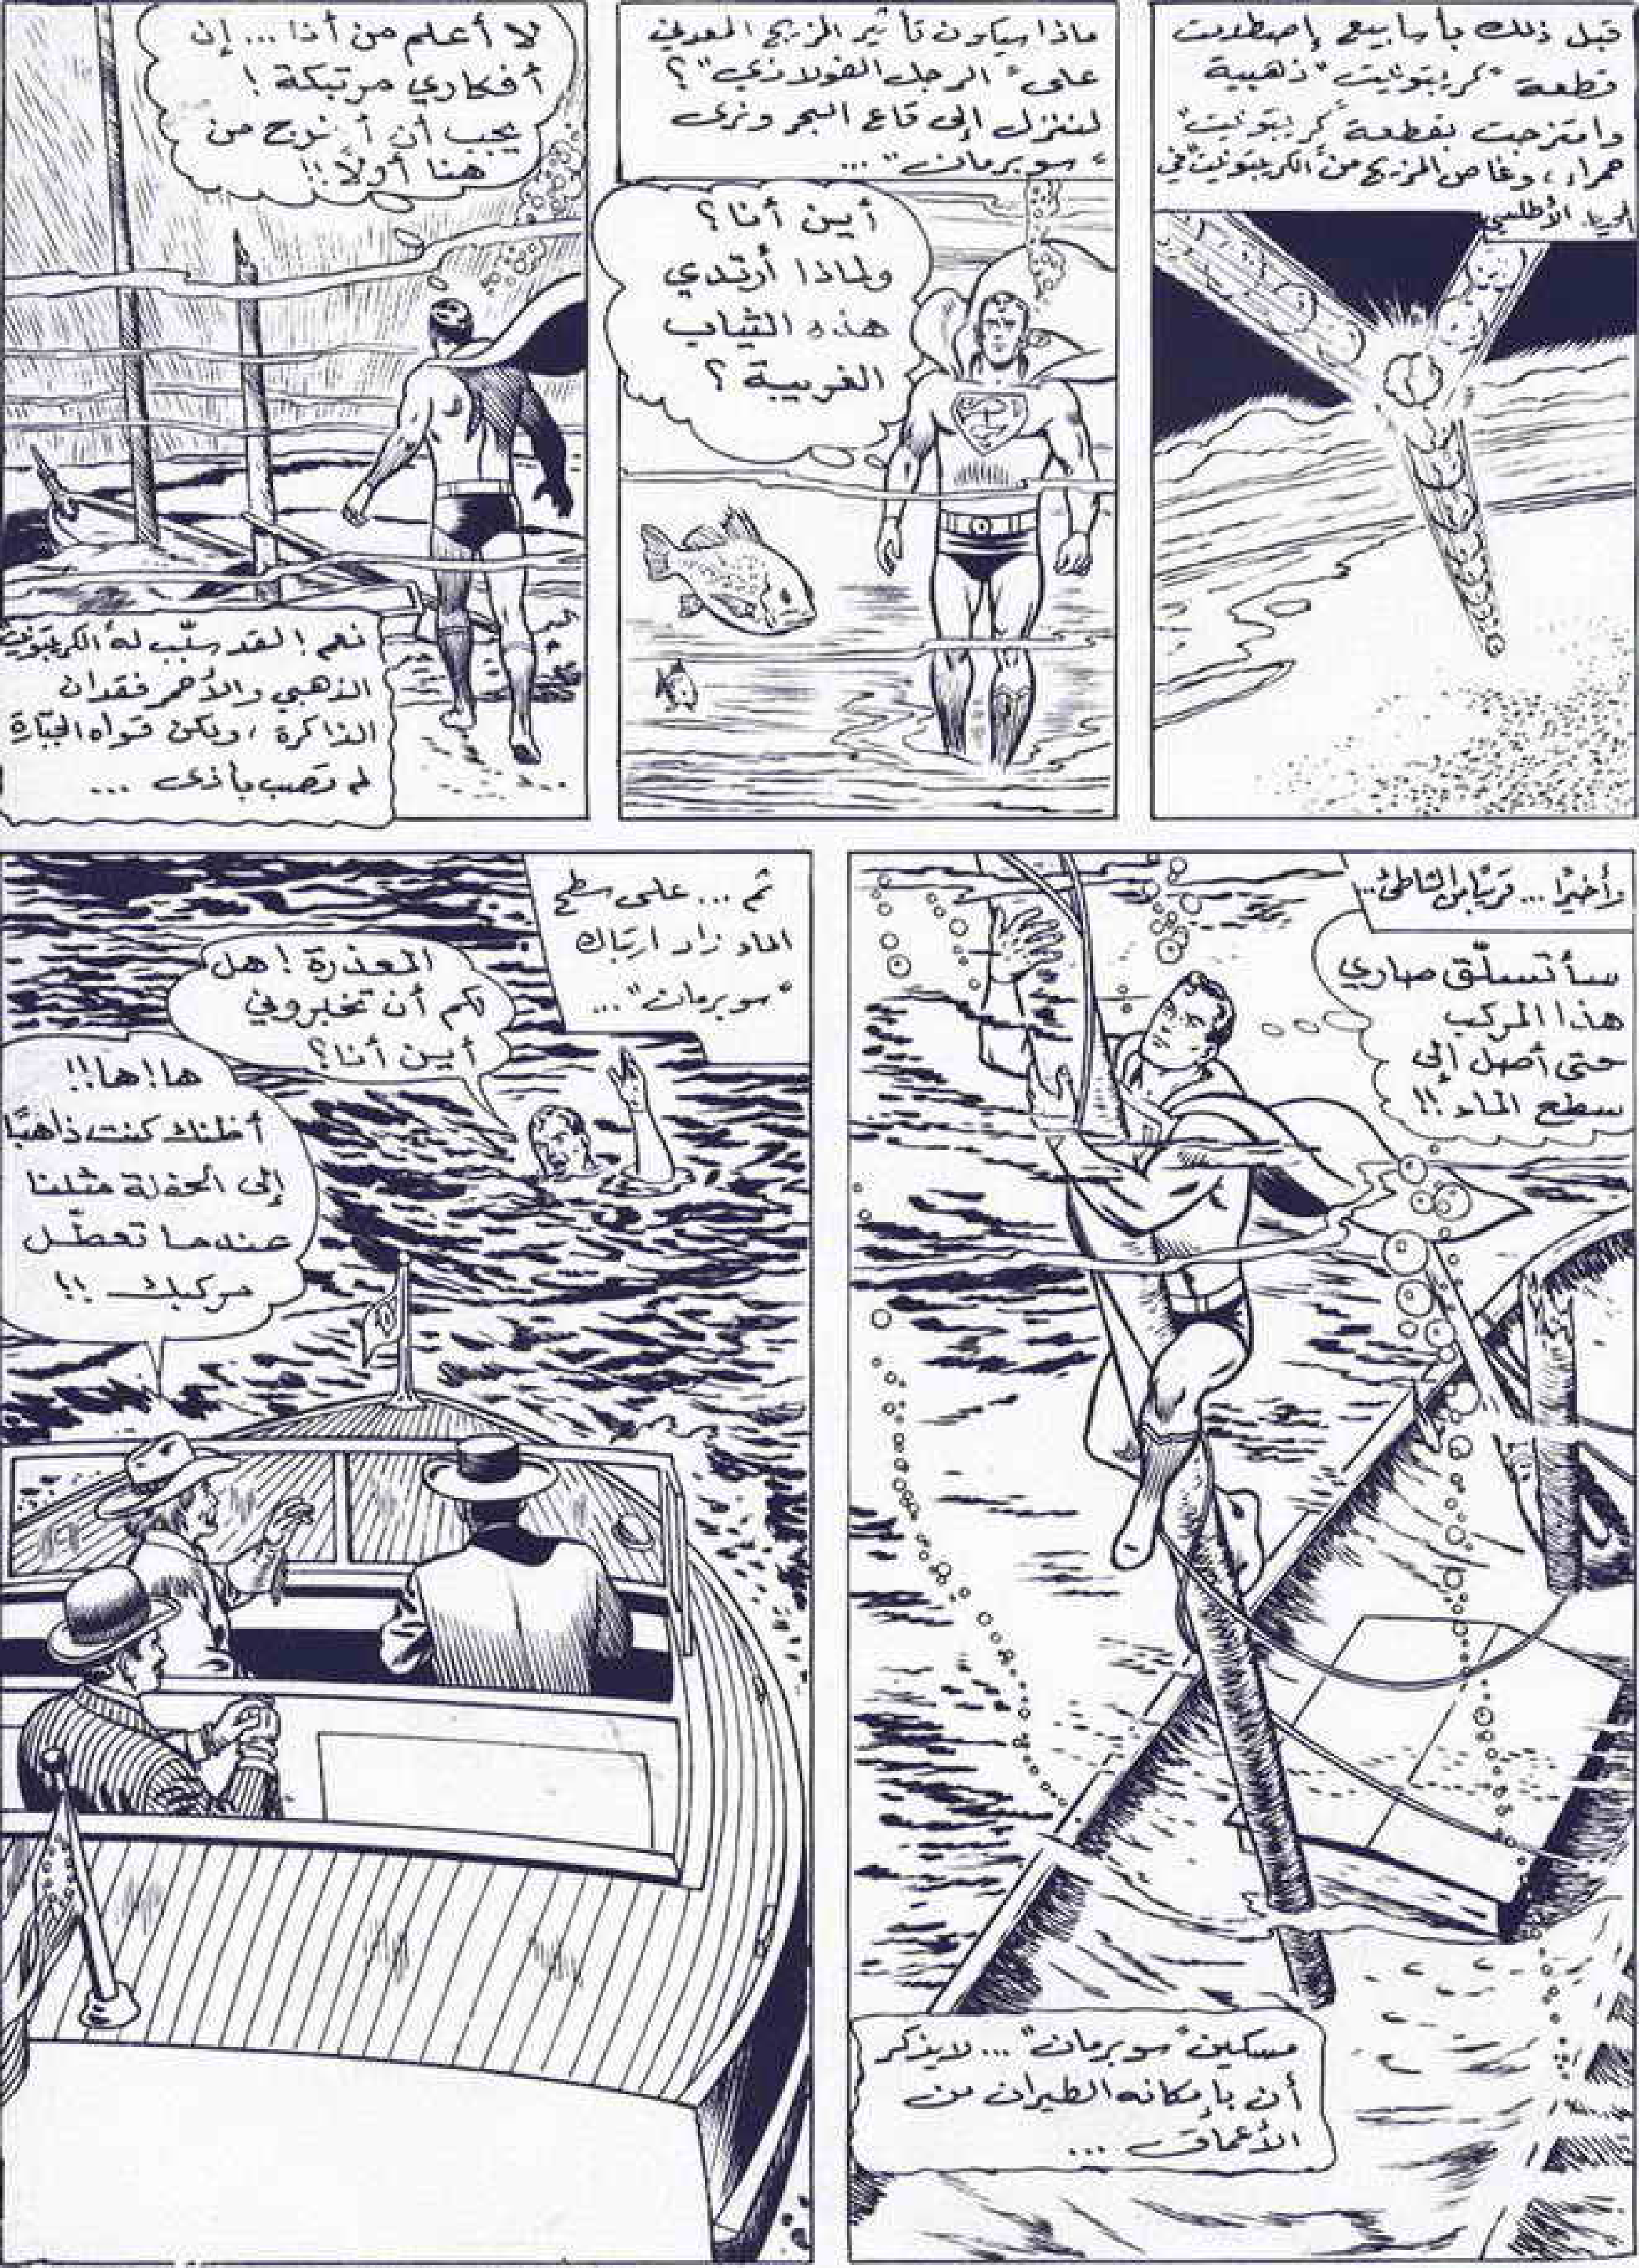 قبل ذلك بأسابيع إصطدمت
قطعة "كريبتونيت" ذهبية
وامتزجت بقطعة "كريبتونيت"
حمراء، وغاص المزيج من "الكريبتونيت" في
المحيط الأطلسي
ماذا سيكون تأثير المزيج المعدني
على "الرجل الفولاذي"؟
لننزل إلى قاع البحر ونرى
"سوبرمان" ...
أين أنا؟
ولماذا أرتدي
هذه الثياب
الغريبة؟
لا أعلم من أنا ... إن
أفكاري مرتبكة!
يجب أن أخرج من
هنا أولاً!!
نعم! لقد سبّب له الكريبتونيت
الذهبي والأحمر فقدان
الذاكرة، ولكن قواه الجبّارة
لم تصب بأذى ...
وأخيرًا ... قريبًا من الشاطئ ..
سأتسلّق صاري
هذا المركب
حتى أصل إلى
سطح الماء!!
مسكين "سوبرمان" ... لا يذكر
أن بإمكانه الطيران من
الأعماق ...
ثم ... على سطح
الماء زاد ارتباك
"سوبرمان" ...
المعذرة! هل
لكم أن تخبروني
أين أنا؟
ها!ها!!
أظنك كنت ذاهبًا
إلى الحفلة مثلنا
عندما تعطّل
مركبك!!